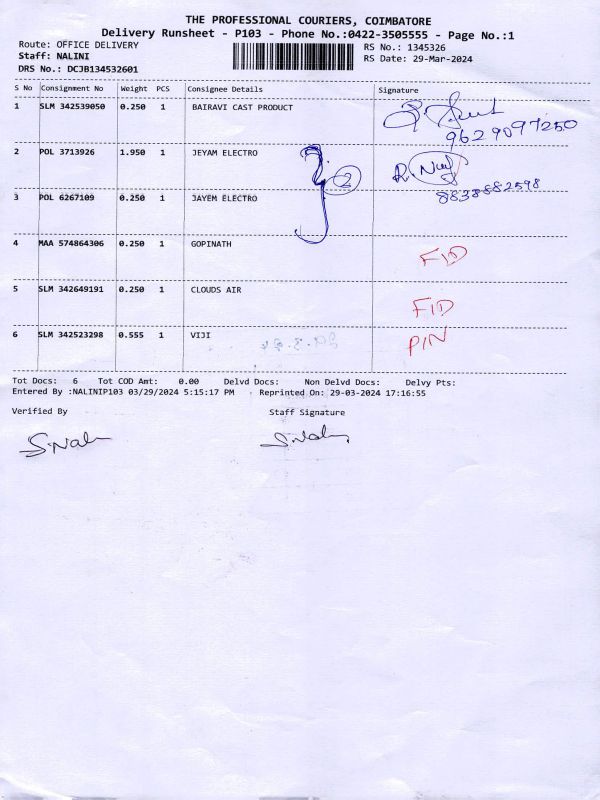 THE PROFESSIONAL COURIERS, COIMBATORE
Delivery Runsheet - P103 - Phone No.:0422-3505555 - Page No.:1
Route: OFFICE DELIVERY RS No.: 1345326
Staff: NALINI RS Date: 29-Mar-2024
DRS No.: DCJB134532601
S No Consignment No Weight PCS Consignee Details Signature
1 SLM 342539050 0.250 1 BAIRAVI CAST PRODUCT
9629097250
2 POL 3713926 1.950 1 JEYAM ELECTRO 2 R.
8838682598
3 POL 6267109 0.250 1 JAYEM ELECTRO
4 MAA 574864306 0.250 1 GOPINATH FID
5 SLM 342649191 0.250 1 CLOUDS AIR FID
6 SLM 342523298 0.555 1 VIJI PIN
Tot Docs: 6 Tot COD Amt: 0.00 Delvd Docs: Non Delvd Docs: Delvy Pts:
Entered By :NALINIP103 03/29/2024 5:15:17 PM Reprinted On: 29-03-2024 17:16:55
Verified By Staff Signature
S.Nali S.Nali